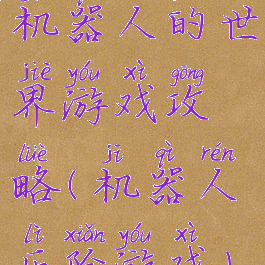 机器人的世
jiè yóu xì gōng
界游戏攻
lüè jī qì rén
略(机器人
lì xiǎn yóu xì
历险游戏)